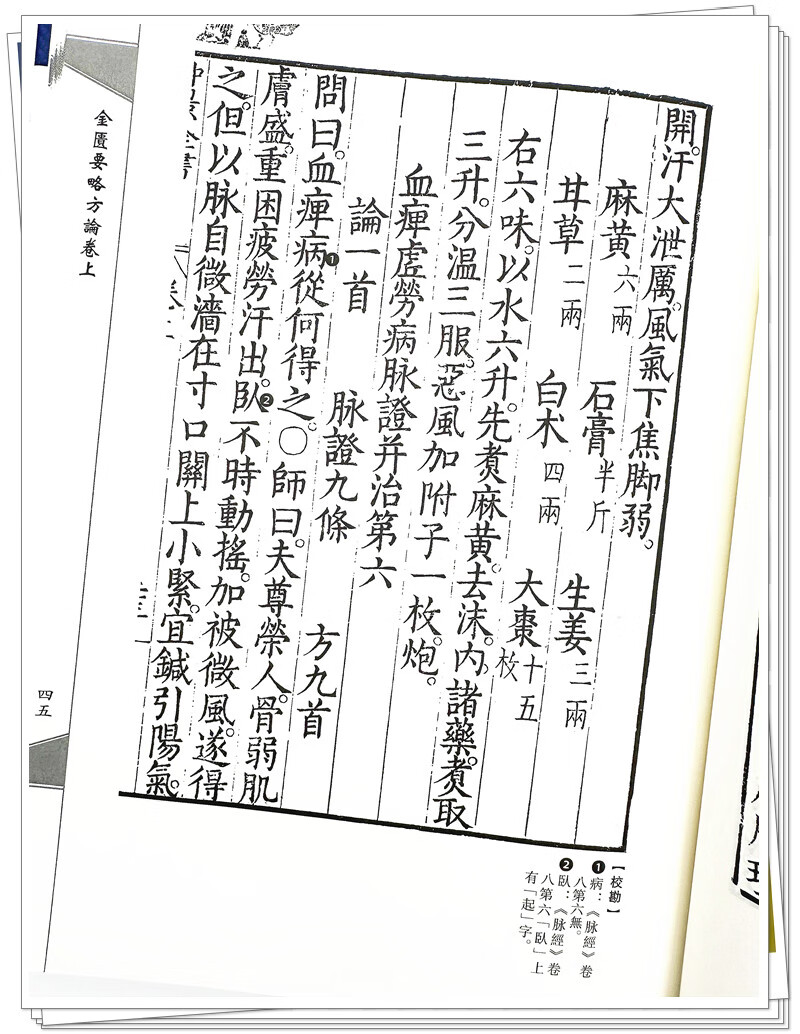 開。汗大泄厲。風氣下焦脚弱。
麻黃六兩 石膏半斤 生姜三兩
甘草二兩 白术四兩 大棗十五枚
右六味。以水六升。先煑麻黃。去沫。內諸藥。煑取
三升。分溫三服。惡風加附子一枚。炮。
血痺虛勞病脉證并治第六
論一首 脉證九條 方九首
問曰。血痺病❶從何得之。○師曰。夫尊榮人。骨弱肌
膚盛。重困疲勞汗出。臥❷不時動搖。加被微風。遂得
之。但以脉自微濇在寸口關上小緊。宜鍼引陽氣。
金匱要略方論卷上
四五
【校勘】
❶病：《脉經》卷
八第六無。
❷臥：《脉經》卷
八第六「臥」上
有「起」字。